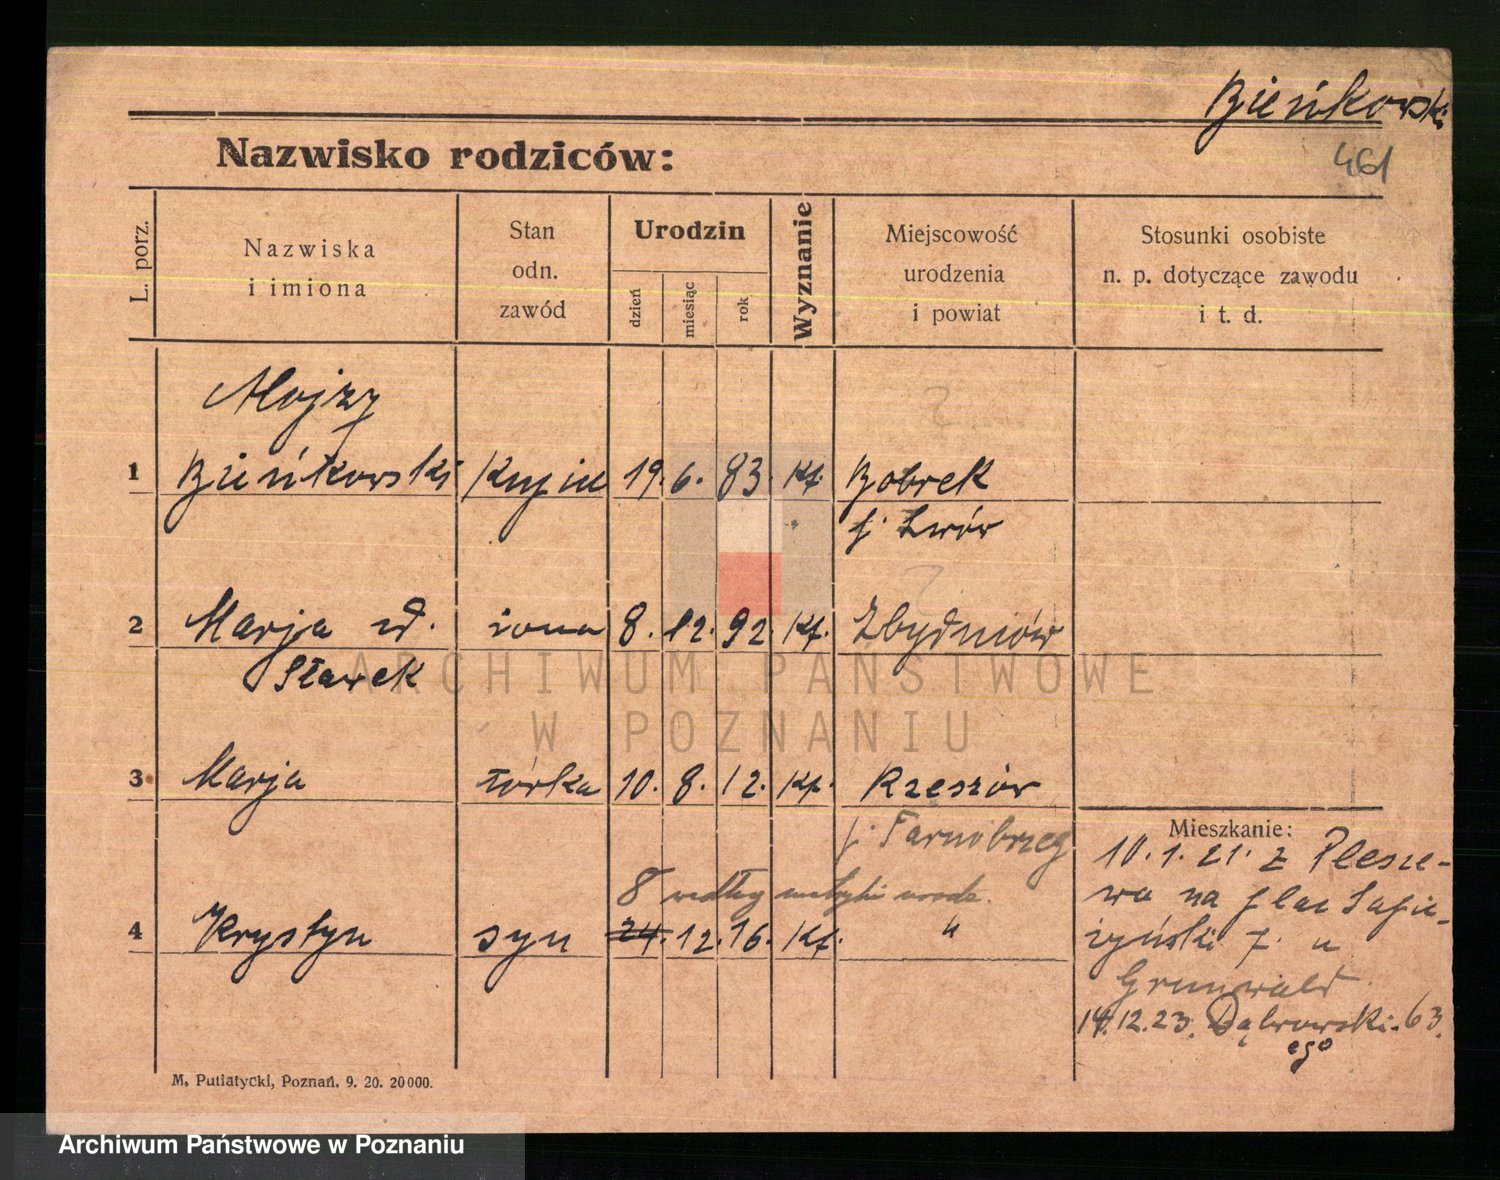 Bieńkowski
461
Nazwisko rodziców:
L. porz.
Nazwiska
i imiona
Stan
odn.
zawód
Urodzin
dzień
miesiąc
rok
Wyznanie
Miejscowość
urodzenia
i powiat
Stosunki osobiste
n. p. dotyczące zawodu
i t. d.
Alojzy
1 Bieńkowski Kupiec 19. 6. 83. Kt. Bobrek
p. Lwów
2 Marja zd. żona 8. 12. 92. Kt. Zbydniów
Sławek
3 Marja córka 10. 8. 12. Kt. Rzeszów
p. Tarnobrzeg
8 według metryki urodz.
4 Krystyn syn 24. 12. 16. Kt. "
Mieszkanie:
10. 1. 21. z Plesze-
wa na plac Sapie-
żyński 7. u
Grunwald
14.12.23. Dąbrowski- 63.
ego
M. Putiatycki, Poznań. 9. 20. 20000.
ARCHIWUM PAŃSTWOWE
W POZNANIU
Archiwum Państwowe w Poznaniu